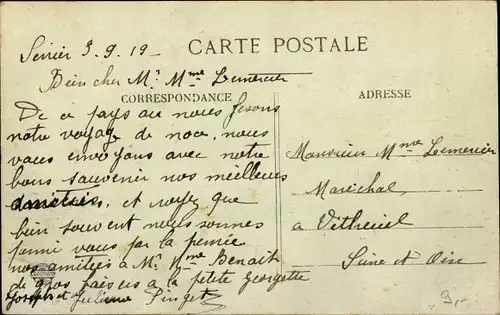 Sevrier 3.9.19 -
CARTE POSTALE
Bien cher Mr. Mme Lemercier
CORRESPONDANCE
De ce pays ou nous fesons
notre voyage de noce, nous
vous envoyons avec notre
bons souvenir nos meilleures
amitiés, et voyez que
bien souvent nous sommes
parmi vous par la pensée
nos amitiés à Mr. Mme Benoit
de gros baisers a la petite Georgette
Joseph et Julienne
ADRESSE
Monsieur Mme Lemercier
Maréchal
a Vétheuil
Seine et Oise
9,-